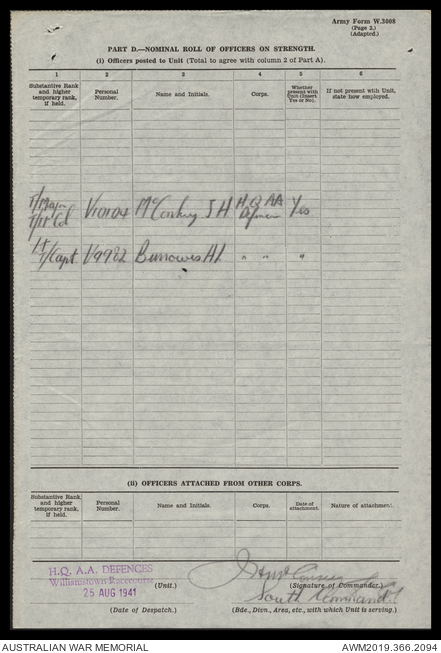 Army Form W.3008
(Page 3.)
(Adapted.)
PART D.—NOMINAL ROLL OF OFFICERS ON STRENGTH.
(i) Officers posted to Unit (Total to agree with column 2 of Part A).
1 2 3 4 5 6
Substantive Rank and higher temporary rank, if held. Personal Number. Name and Initials. Corps. Whether present with Unit (Insert Yes or No). If not present with Unit, state how employed.
T/Major V10104 McConkey J H H.Q AA Yes
Lt
T/Capt V9982 Burrowes H L " " "
(ii) OFFICERS ATTACHED FROM OTHER CORPS.
Substantive Rank and higher temporary rank, if held. Personal Number. Name and Initials. Corps. Date of attachment. Nature of attachment.
H.Q. A.A. DEFENCES
Williamstown Racecourse
25 AUG 1941
(Unit.)
(Signature of Commander.)
South Command
(Date of Despatch.) (Bde., Divn., Area, etc., with which Unit is serving.)
AUSTRALIAN WAR MEMORIAL AWM2019.366.2094